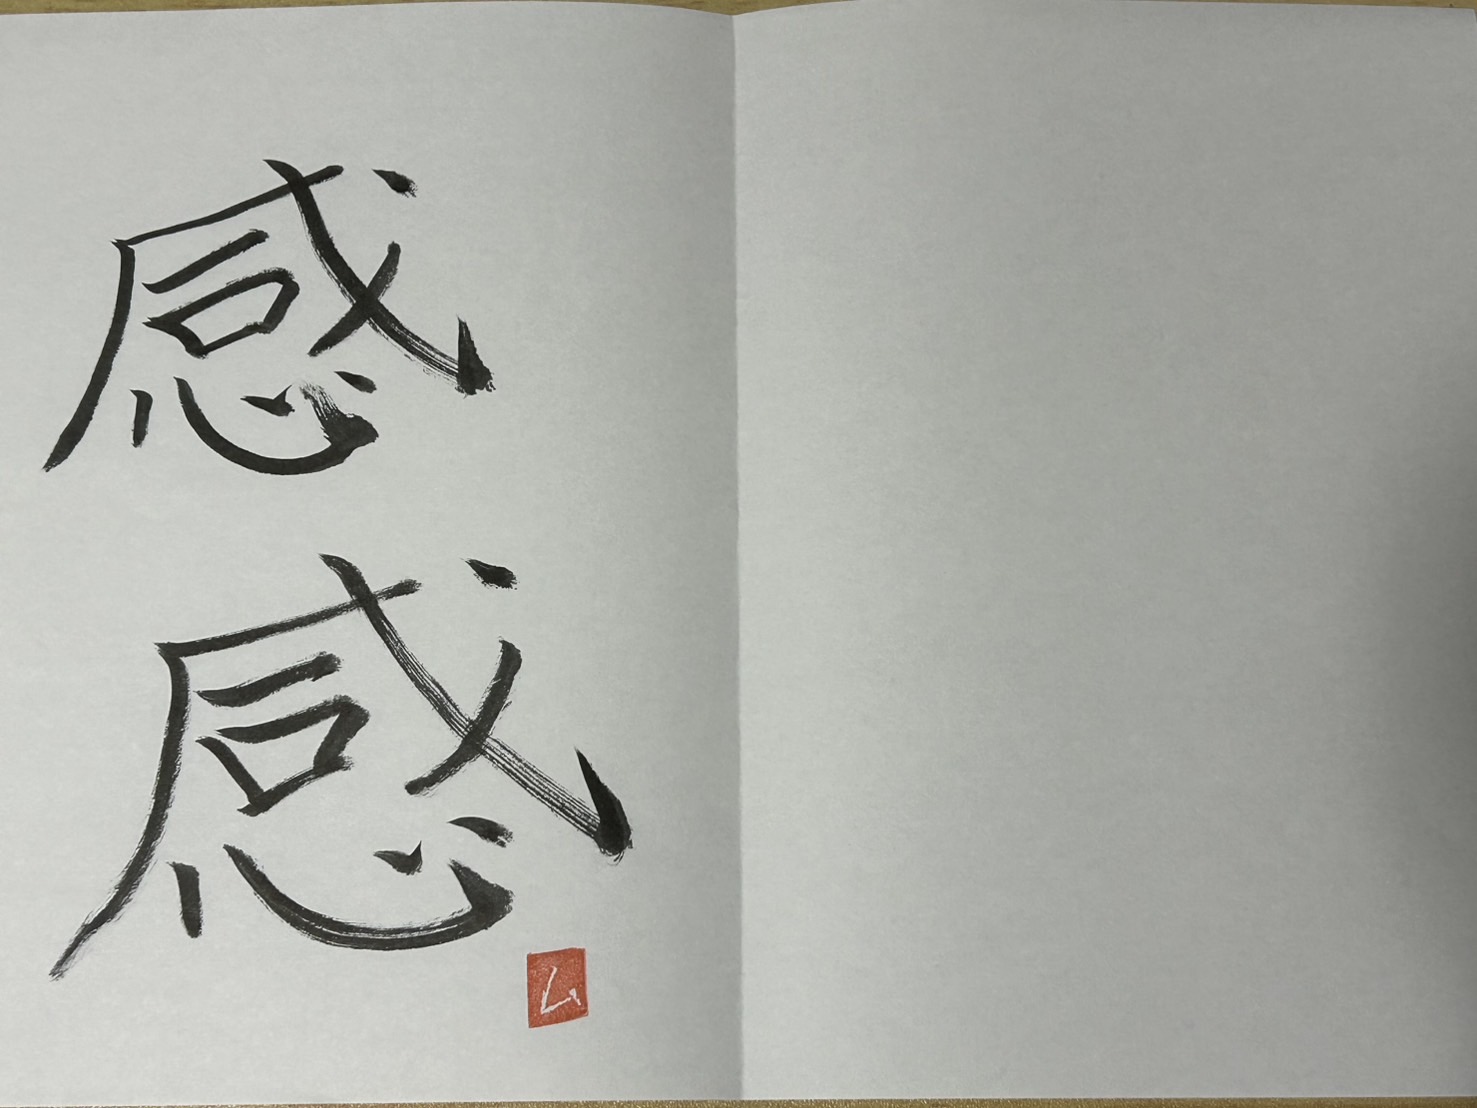 感
感
ム